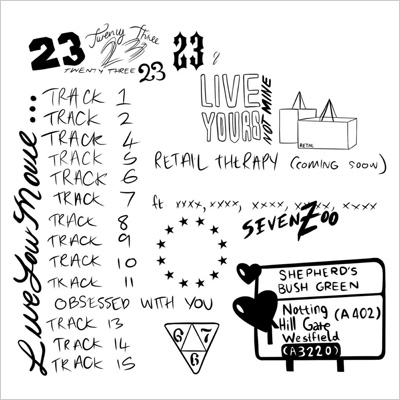 23
Twenty Three
23
TWENTY THREE
23
23
Live Your Movie...
TRACK 1
TRACK 2
TRACK 4
TRACK 5
TRACK 6
TRACK 7
TRACK 8
TRACK 9
TRACK 10
TRACK 11
OBSESSED WITH YOU
TRACK 13
TRACK 14
TRACK 15
LIVE
YOURS
NOT MINE
RETAIL
RETAIL THERAPY (COMING SOON)
ft xxxx, xxxx, xxxx, xxxx, xxxx
SEVENZOO
SHEPHERD'S
BUSH GREEN
Notting
Hill Gate
(A402)
Westfield
(A3220)
6 7 6